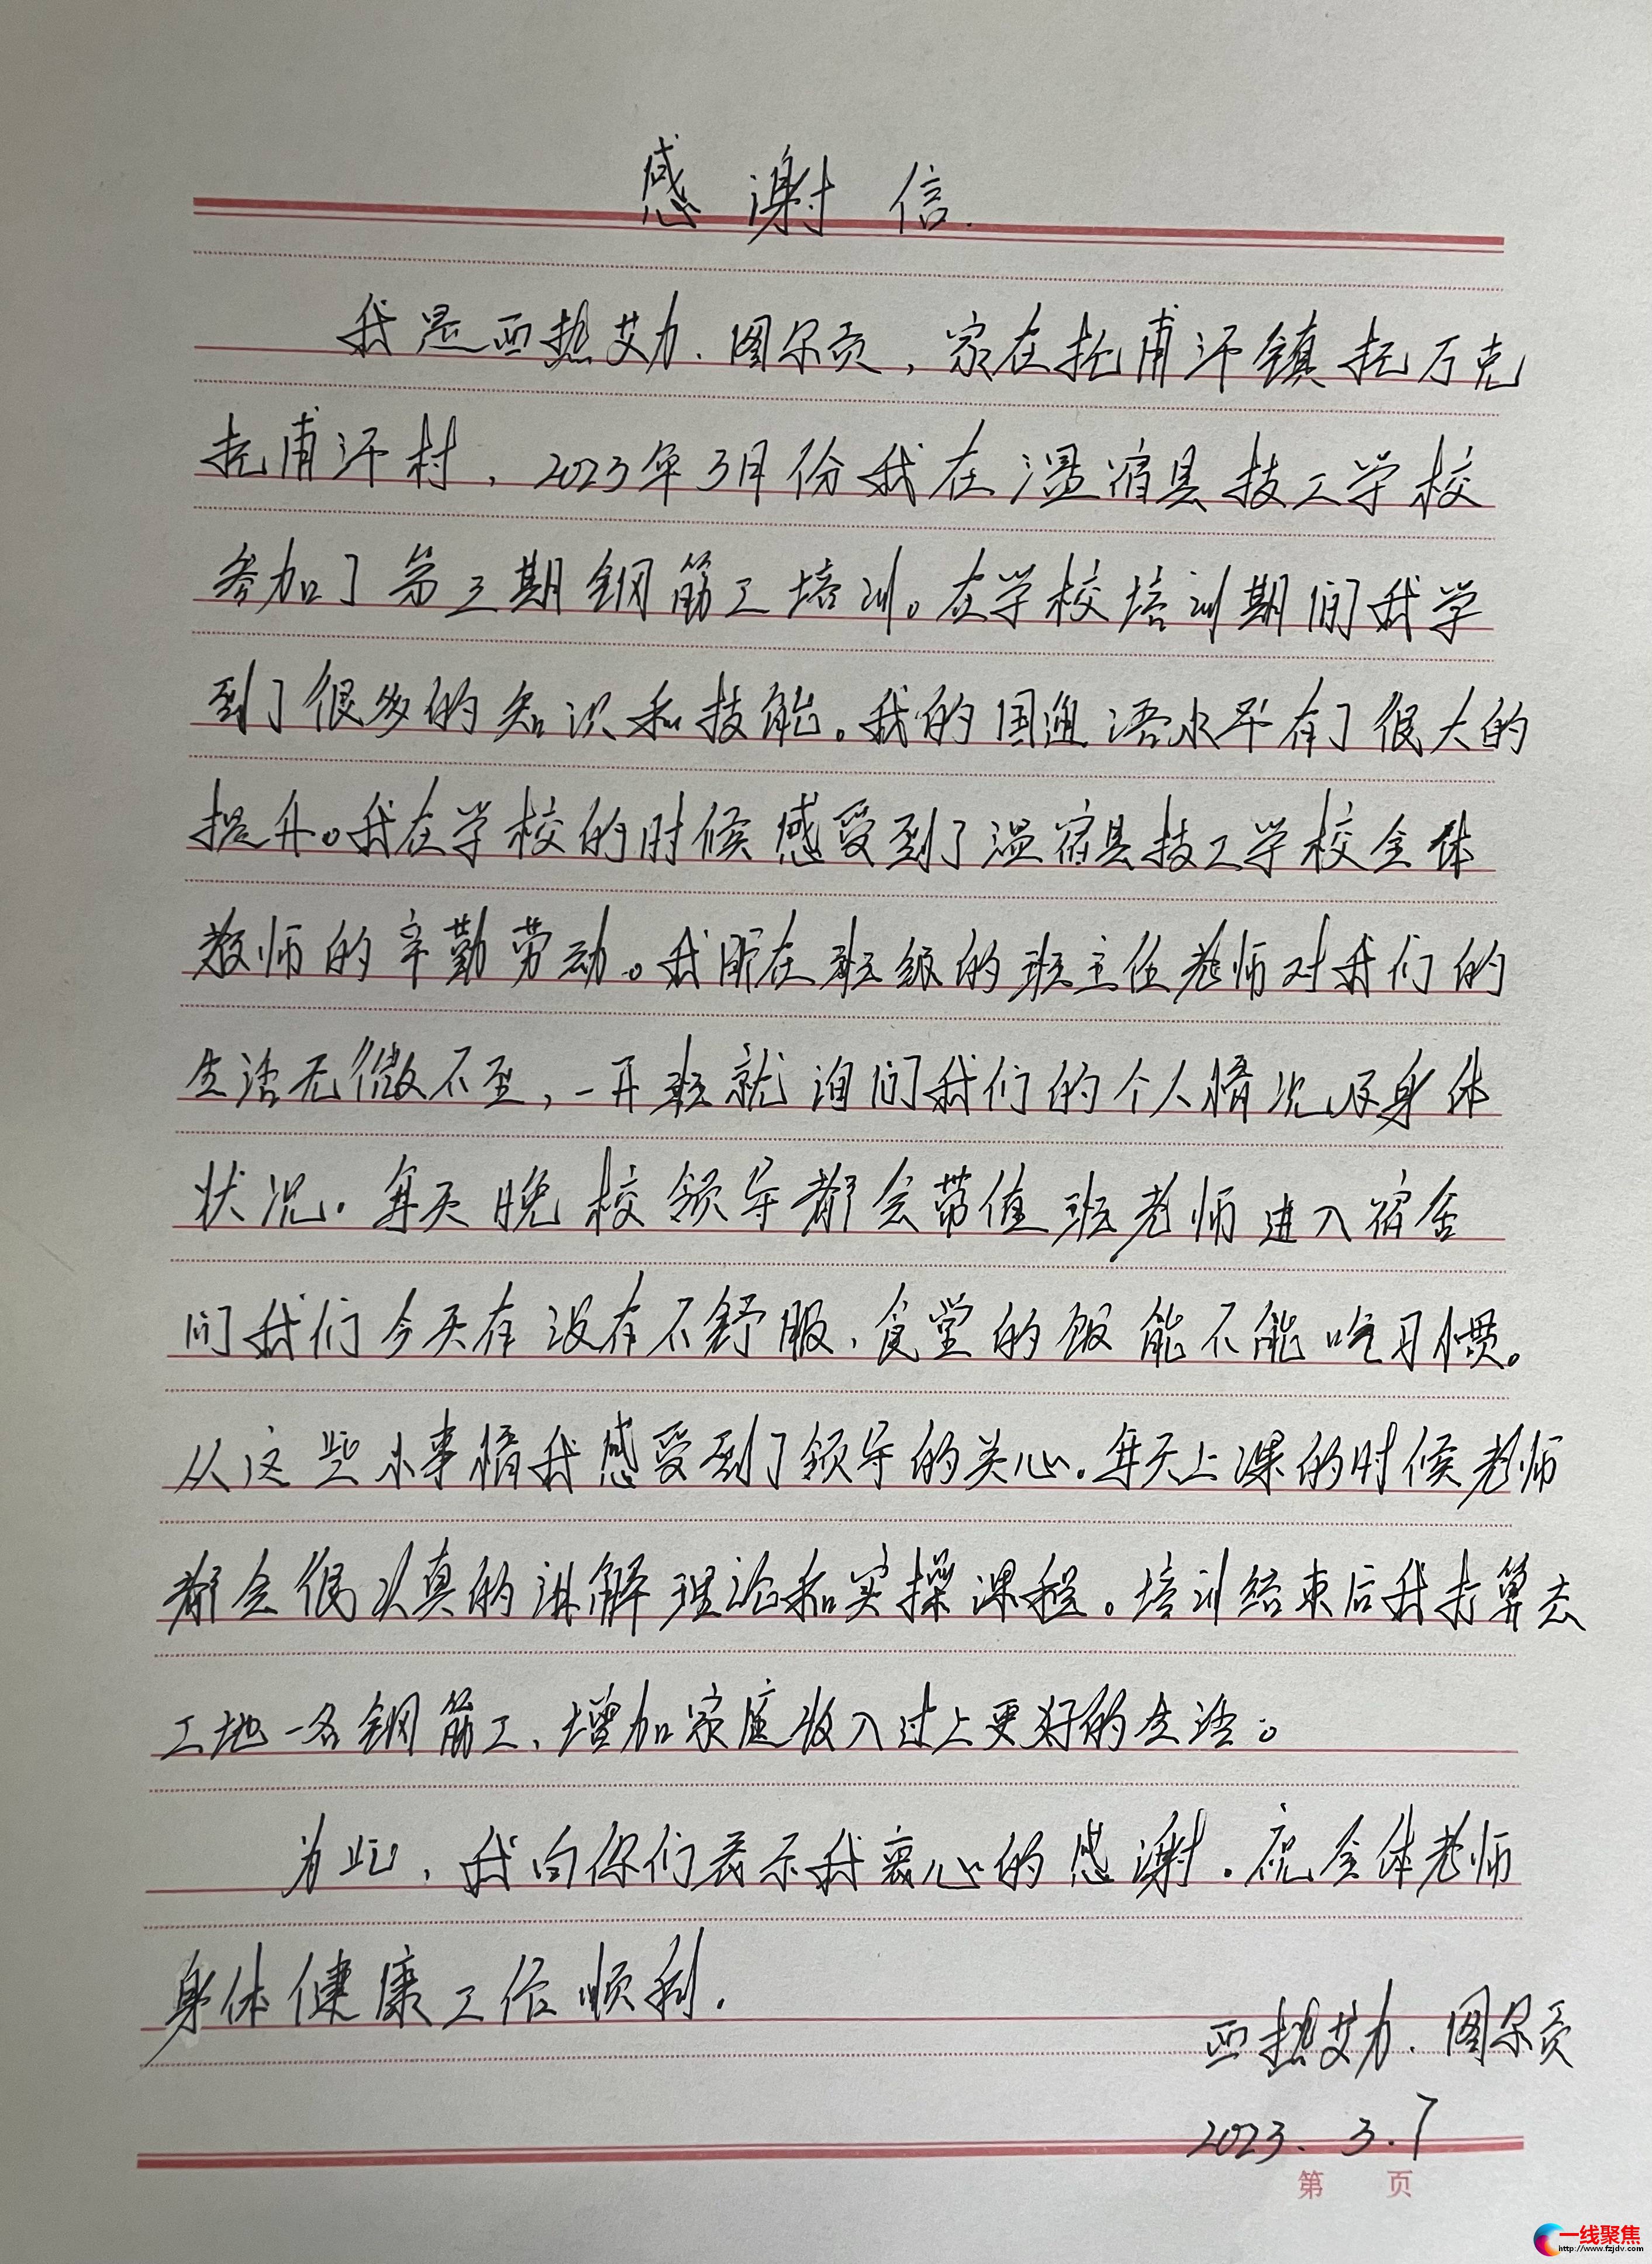 感谢信.
我是西热艾力.图尔贡，家在托甫汗镇托万克
托甫汗村，2023年3月份我在温宿县技工学校
参加了第三期钢筋工培训。在学校培训期间我学
到了很多的知识和技能。我的国通语水平有了很大的
提升。我在学校的时候感受到了温宿县技工学校全体
教师的辛勤劳动。我所在班级的班主任老师对我们的
生活无微不至，一开班就询问我们的个人情况及身体
状况.每天晚校领导都会带值班老师进入宿舍
问我们今天有没有不舒服、食堂的饭能不能吃习惯。
从这些小事情我感受到了领导的关心.每天上课的时候老师
都会很认真的讲解理论和实操课程。培训结束后我打算去
工地一名钢筋工、增加家庭收入过上更好的生活。
为此，我向你们表示我衷心的感谢.祝全体老师
身体健康工作顺利.
西热艾力.图尔贡
2023.3.7
第 页
一线聚焦
http://www.fzjdv.com